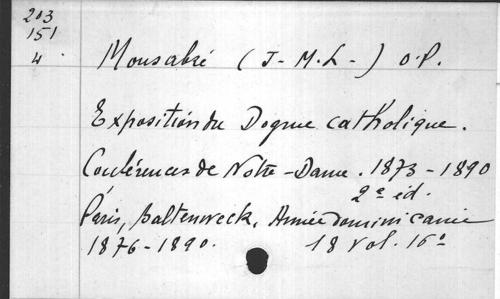 203
151
4.
Monsabré (J-M.L-) O.P.
Exposition du Dogme catholique.
Conférences de Notre-Dame. 1873-1890
2e éd.
Paris, Baltenweck, Année dominicaine
1876-1890. 18 vol. 16°